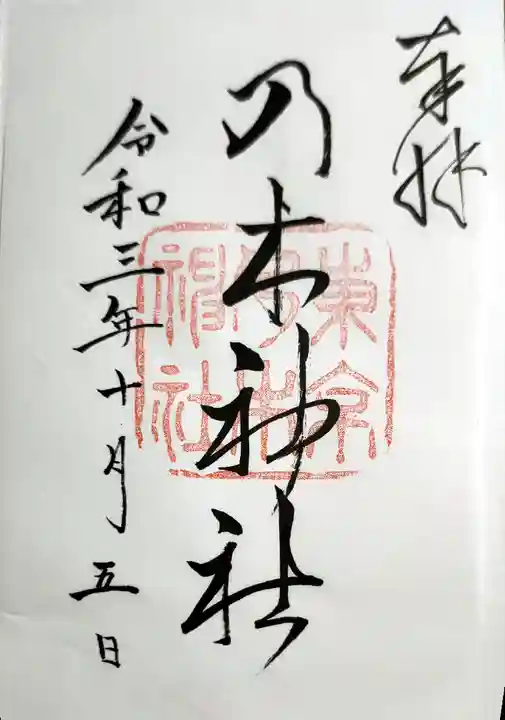 奉拝
乃木神社
東京乃木神社
令和三年十月五日